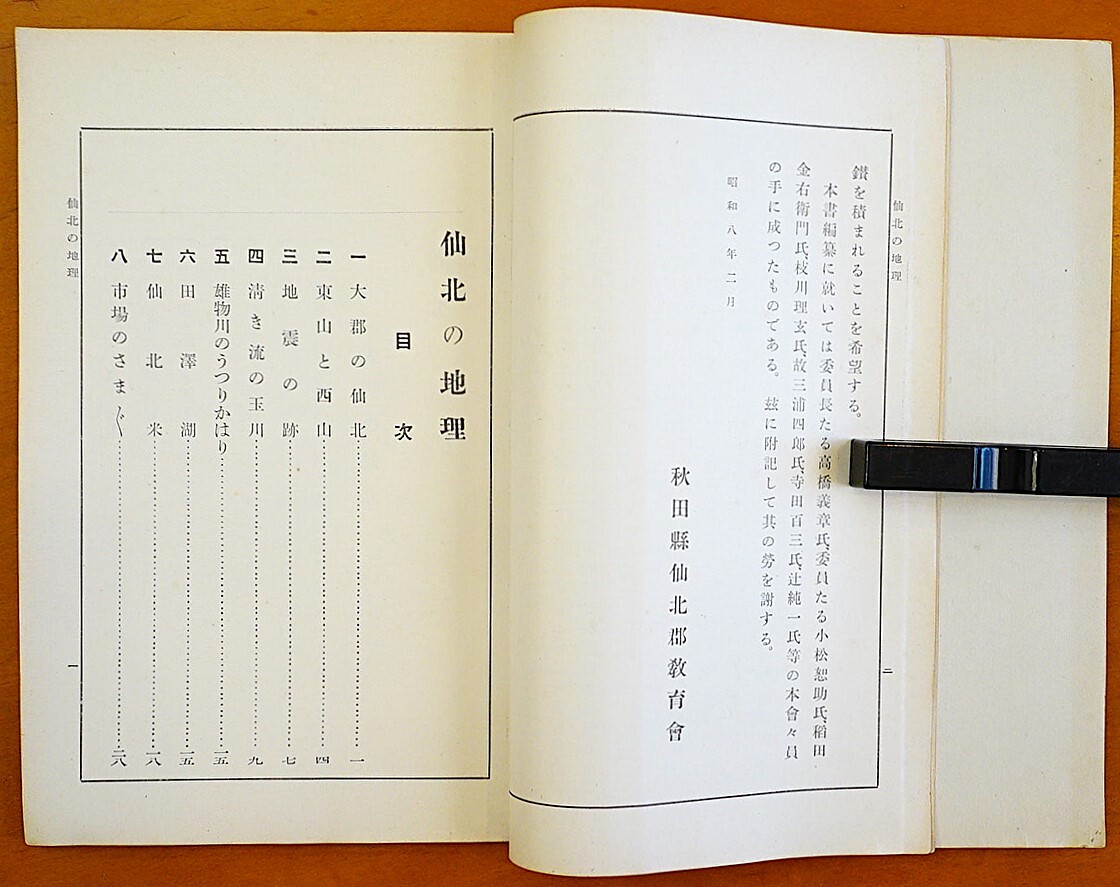 仙北の地理
鑚を積まれることを希望する。
本書編纂に就いては委員長たる高橋義章氏、委員たる小松恕助氏、稻田
金右衛門氏、枝川理玄氏、故三浦四郎氏、寺田百三氏、辻純一氏等の本會々員
の手に成つたものである。茲に附記して其の勞を謝する。
昭和八年二月
秋田縣仙北郡敎育會
二
仙北の地理
目次
一 大郡の仙北 一
二 東山と西山 四
三 地震の跡 七
四 淸き流の玉川 九
五 雄物川のうつりかはり 一五
六 田澤湖 一五
七 仙北米 一八
八 市場のさま〴〵 二八
仙北の地理
一